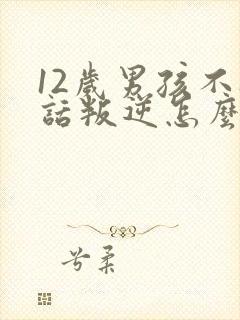 12歲男孩不
話叛逆怎麼
兮柔